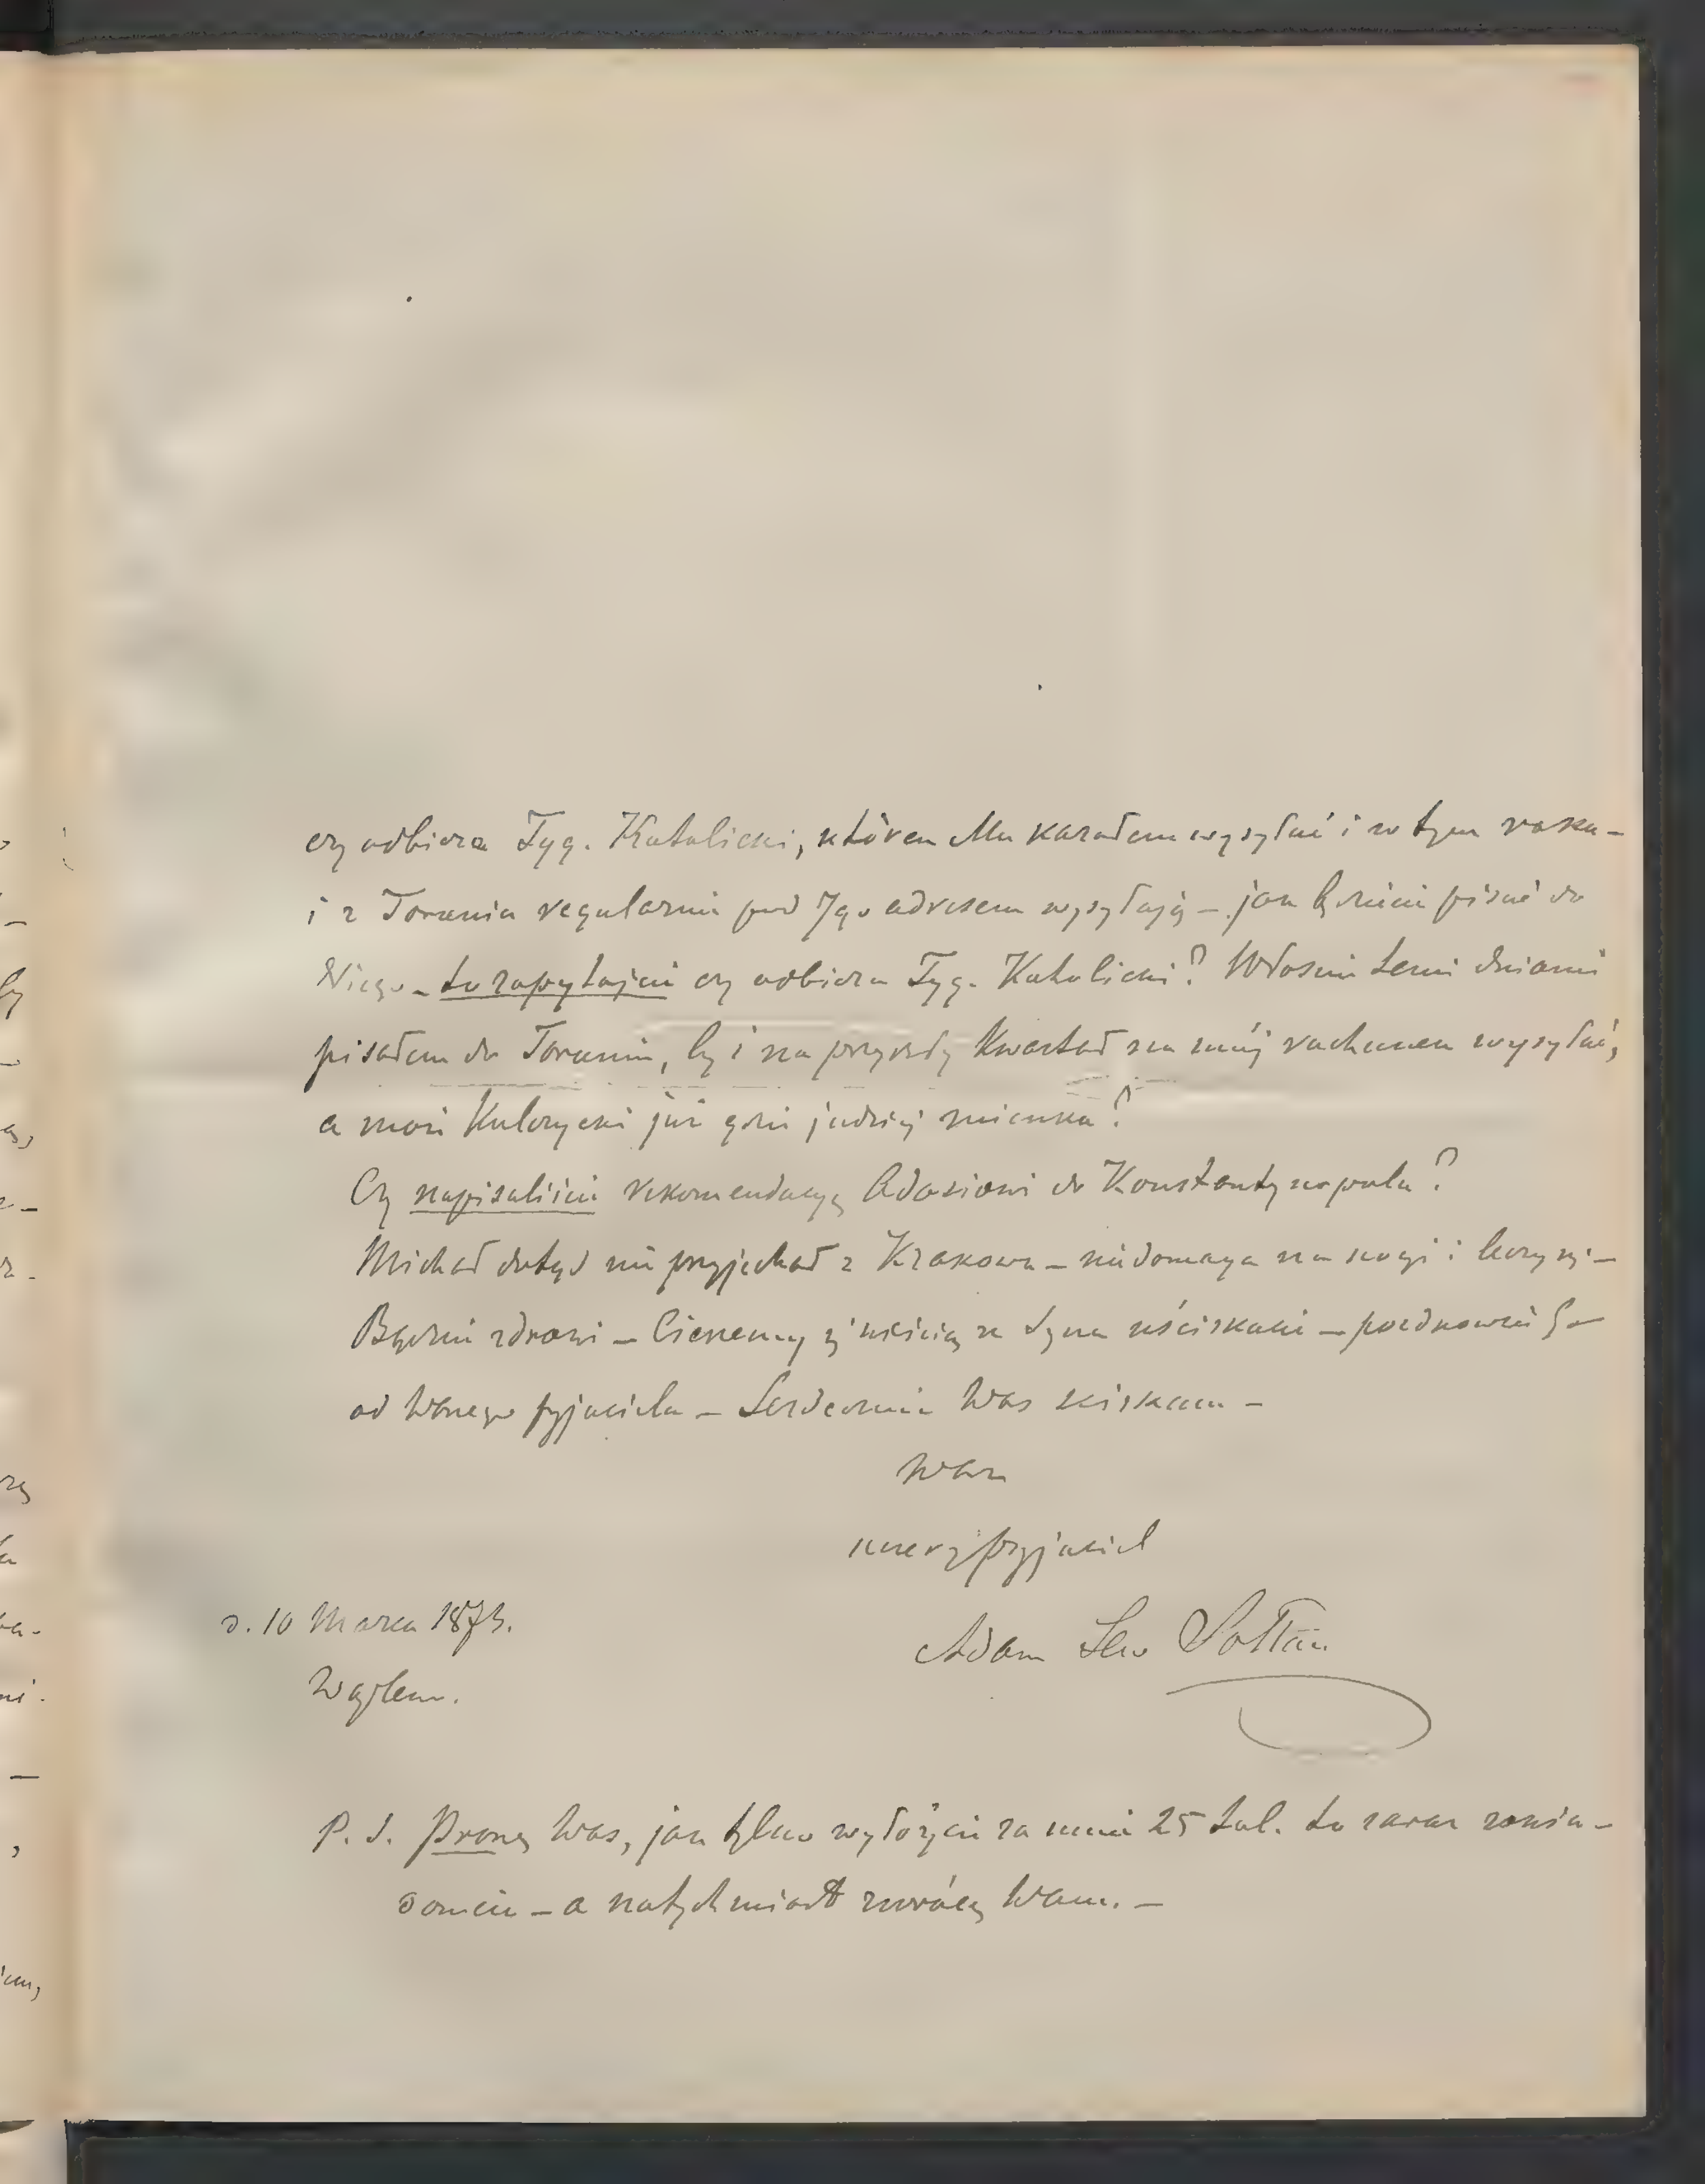 czy odbiera Tyg. Katolicki, któren Mu kazałem wysyłać i w tym roku –
i z Torunia regularnie pod Jego adresem wysyłają – jak będziecie pisać do
Niego – to zapytajcie czy odbiera Tyg. Katolicki? Właśnie temi dniami
pisałem do Torunia, by i na przyszły Kwartał na mój rachunek wysyłać,
a może Kulczycki już gdzie indziej mieszka?
Czy napisaliście rekomendacyę Adasiowi do Konstantynopola?
Michał dotąd nie przyjechał z Krakowa – niedomaga na nogi i leczy się –
Bądźcie zdrowi – Cieszemy się, że syna uściskacie – pozdrówcie Go
od Waszego przyjaciela – Serdecznie Was ściskam –
Wasz
szczery przyjaciel
d. 10 Marca 1873.
Adam Lew Sołtan
P. S. Proszę Was, jak tylko wyłożycie za mnie 25 tal. to zaraz zawia-
domcie – a natychmiast zwrócę Wam. –